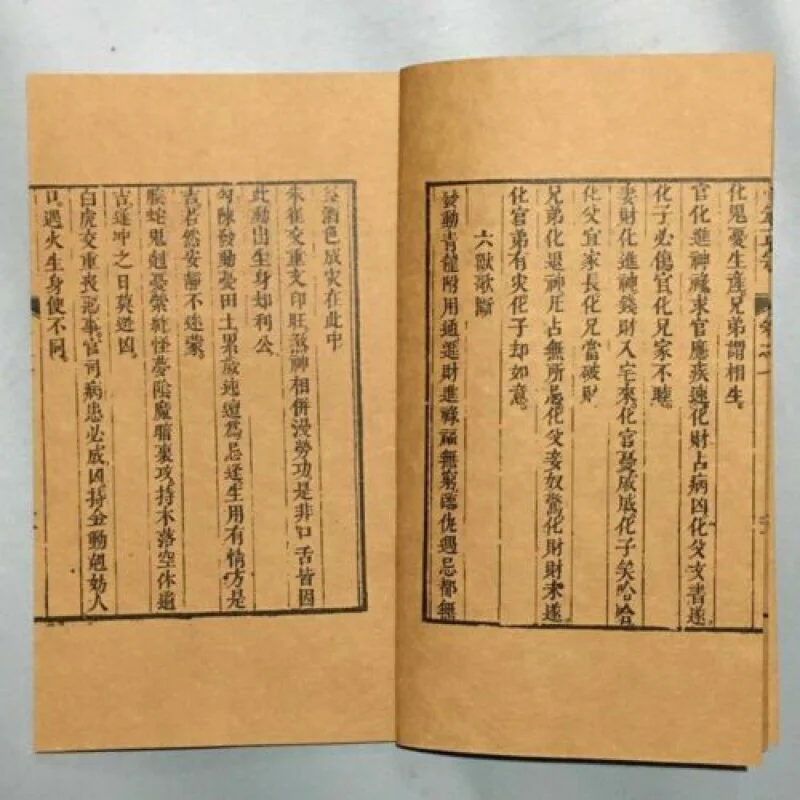 化鬼憂生產兄弟謂相生。
官化進神祿求官應疾速化財占病凶化父文書遂
化子必傷官化兄家不睦。
妻財化進神錢財入宅來化官憂戚戚化子笑哈哈
化父宜家長化兄當破財
兄弟化退神凡占無所忌化父妾奴驚化財財未遂
化官弟有灾化子却如意。
六獸歌斷
發動青龍附用通進財進祿福無窮臨仇遇忌都無
益酒色成灾在此中
朱雀交重文印旺煞神相併漫勞功是非口舌皆因
此動出生身却利公
勾陳發動憂田土累歲迍邅爲忌逢生用有情方是
吉若然安靜不迷蒙。
螣蛇鬼尅憂縈絆怪夢陰魔暗裏攻持木落空休道
吉逢冲之日莫逃凶。
白虎交重喪惡事官司病患必成凶持金動尅妨人
口遇火生身便不同